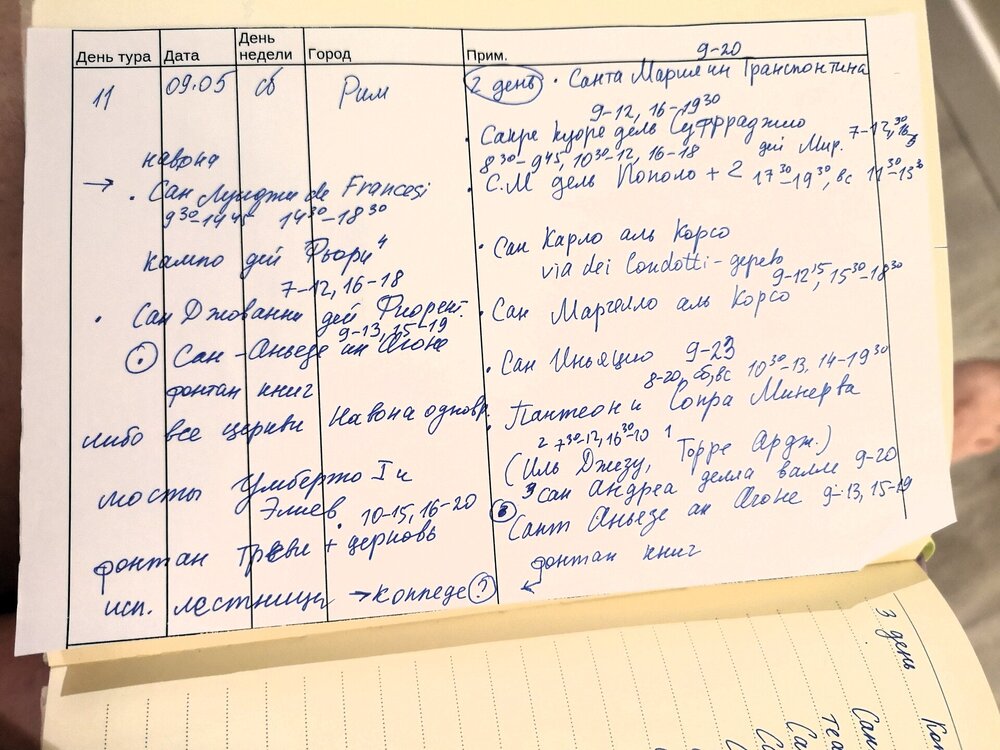 День тура Дата День недели Город Прим.
11 09.05 сб Рим
2 день
9-20
• Санта Мария ин Транспонтина
9-12, 16-19³⁰
• Сакре Куоре дель Суффраджио
8³⁰-9⁴⁵, 10³⁰-12, 16-18
дей Мир. 7-12,³⁰
• С.М дель Пополо + 2 17³⁰-19³⁰, вс 11³⁰-13³⁰
• Сан Карло аль Корсо
via dei Condotti-дерево
9-12¹⁵, 15³⁰-18³⁰
• Сан Марчелло аль Корсо
• Сан Иньяцио 9-23
8-20, сб, вс 10³⁰-13, 14-19³⁰
• Пантеон и Сопра Минерва
2 7³⁰-12, 16³⁰-10 1
(Иль Джезу, Торре Ардж.)
3 Сан Андреа делла валле 9-20
Сант Аньезе ин Агоне 9-13, 15-19
фонтан книг
←
навона
→ • Сан Луиджи de Francesi
9³⁰-14⁴⁵ 14³⁰-18³⁰
кампо дей "Фьори"
7-12, 16-18
• Сан Джованни дей Фиорент.
9-13, 15-19
• Сан-Аньезе ин Агоне
фонтан книг
либо все церкви Навона одновр.
мосты Умберто I и
Элиев. 10-15, 16-20
фонтан Треви + церковь
исп. лестница → Коппеде ?
3 день